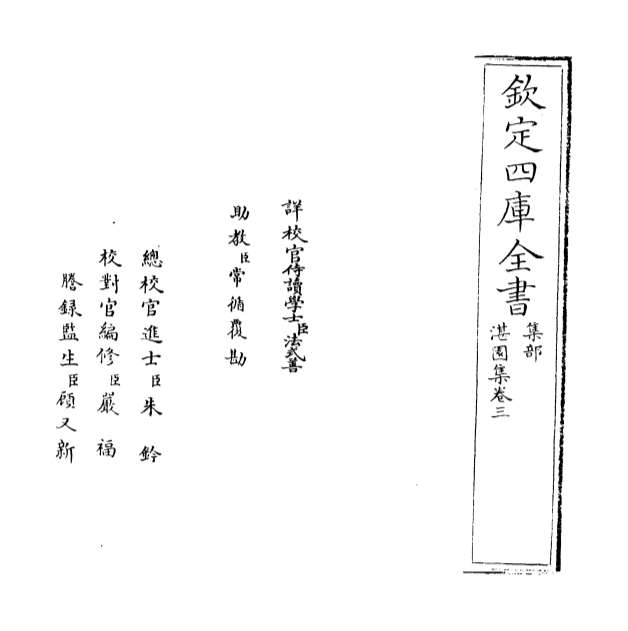 欽定四庫全書
集部
湛園集卷三
詳校官侍讀學士臣法式善
助教臣常循覆勘
總校官進士臣朱鈐
校對官編修臣嚴福
謄錄監生臣顧又新